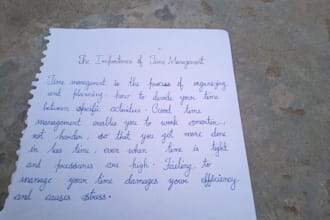 The Importance of Time Management
Time management is the process of organizing
and planning how to divide your time
between specific activities. Good time
management enables you to work smarter,
not harder, so that you get more done
in less time, even when time is tight
and pressures are high. Failing to
manage your time damages your efficiency
and causes stress.